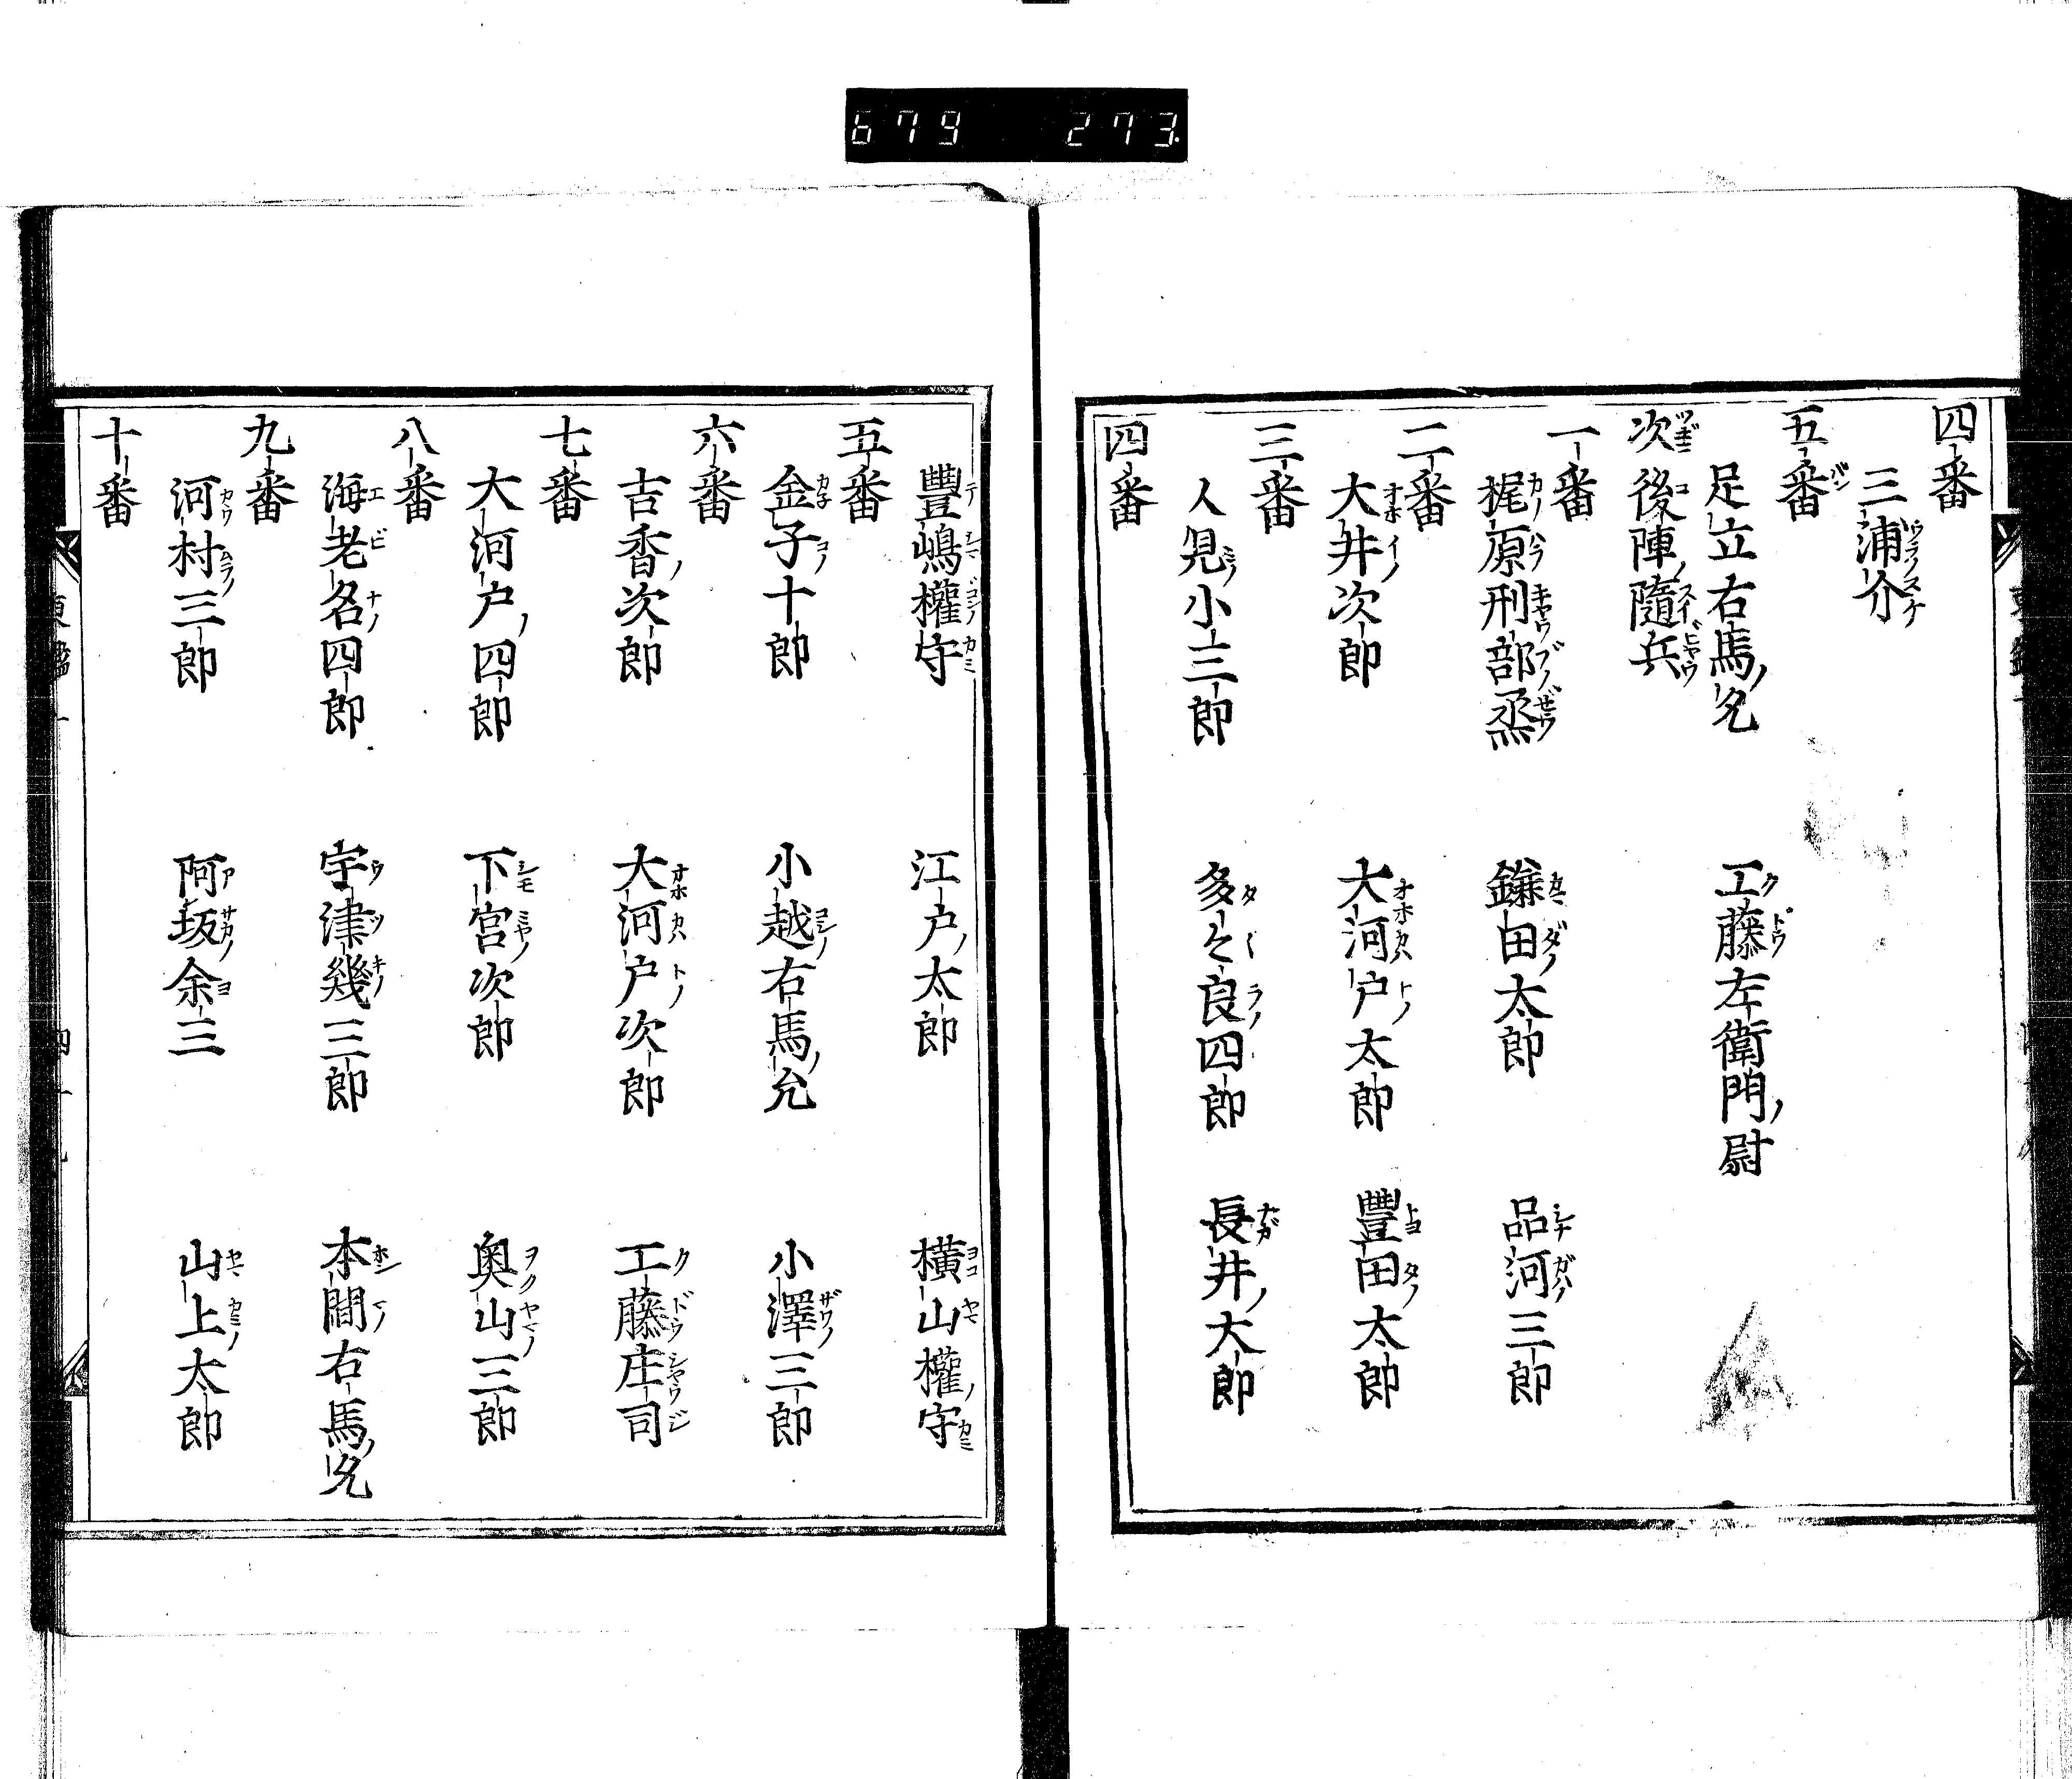 679 273
四番
三浦介
五番
足立右馬ノ允 工藤左衛門ノ尉
次後陣ノ隨兵
一番
梶原刑部烝 鎌田太郎 品河三郎
二番
大井次郎 大河戸太郎 豐田太郎
三番
人見小三郎 多々良四郎 長井ノ太郎
四番
豐嶋權守 江戸ノ太郎 横山權ノ守
五番
金子十郎 小越右馬ノ允 小澤三郎
六番
吉香ノ次郎 大河戸次郎 工藤庄司
七番
大河戸ノ四郎 下宮次郎 奥山三郎
八番
海老名四郎 宇津幾三郎 本間右馬ノ允
九番
河村三郎 阿坂余三 山上太郎
十番